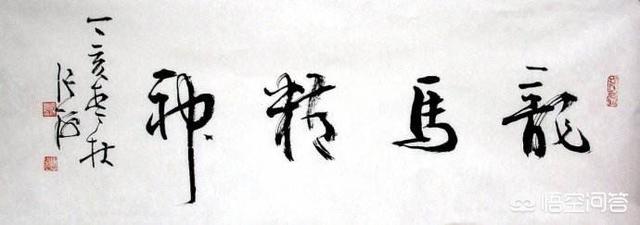 龍馬精神
丁亥
张海
悟空问答